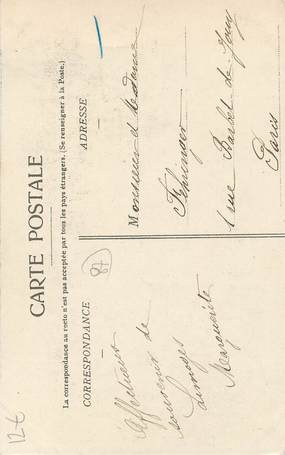 CARTE POSTALE
La correspondance au recto n'est pas acceptée par tous les pays étrangers. (Se renseigner à la Poste.)
CORRESPONDANCE
Affectueux
souvenir de
Limoges
Marguerite
87
ADRESSE
Monsieur et Madame
Fehringer
1 rue Barbet de Jouy
Paris
12€